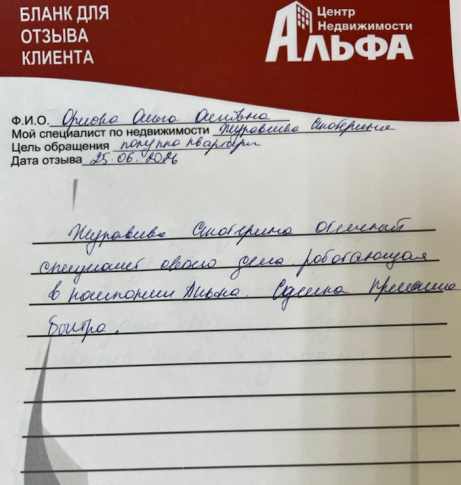 БЛАНК ДЛЯ
ОТЗЫВА
КЛИЕНТА
Центр
Недвижимости
АЛЬФА
Ф.И.О. Орлова Ольга
Мой специалист по недвижимости Журавлева Екатерина
Цель обращения покупка квартиры
Дата отзыва 25.06.2026
Журавлева Екатерина отличный
специалист своего дела работающая
в компании Альфа. Сделка прошла
быстро.